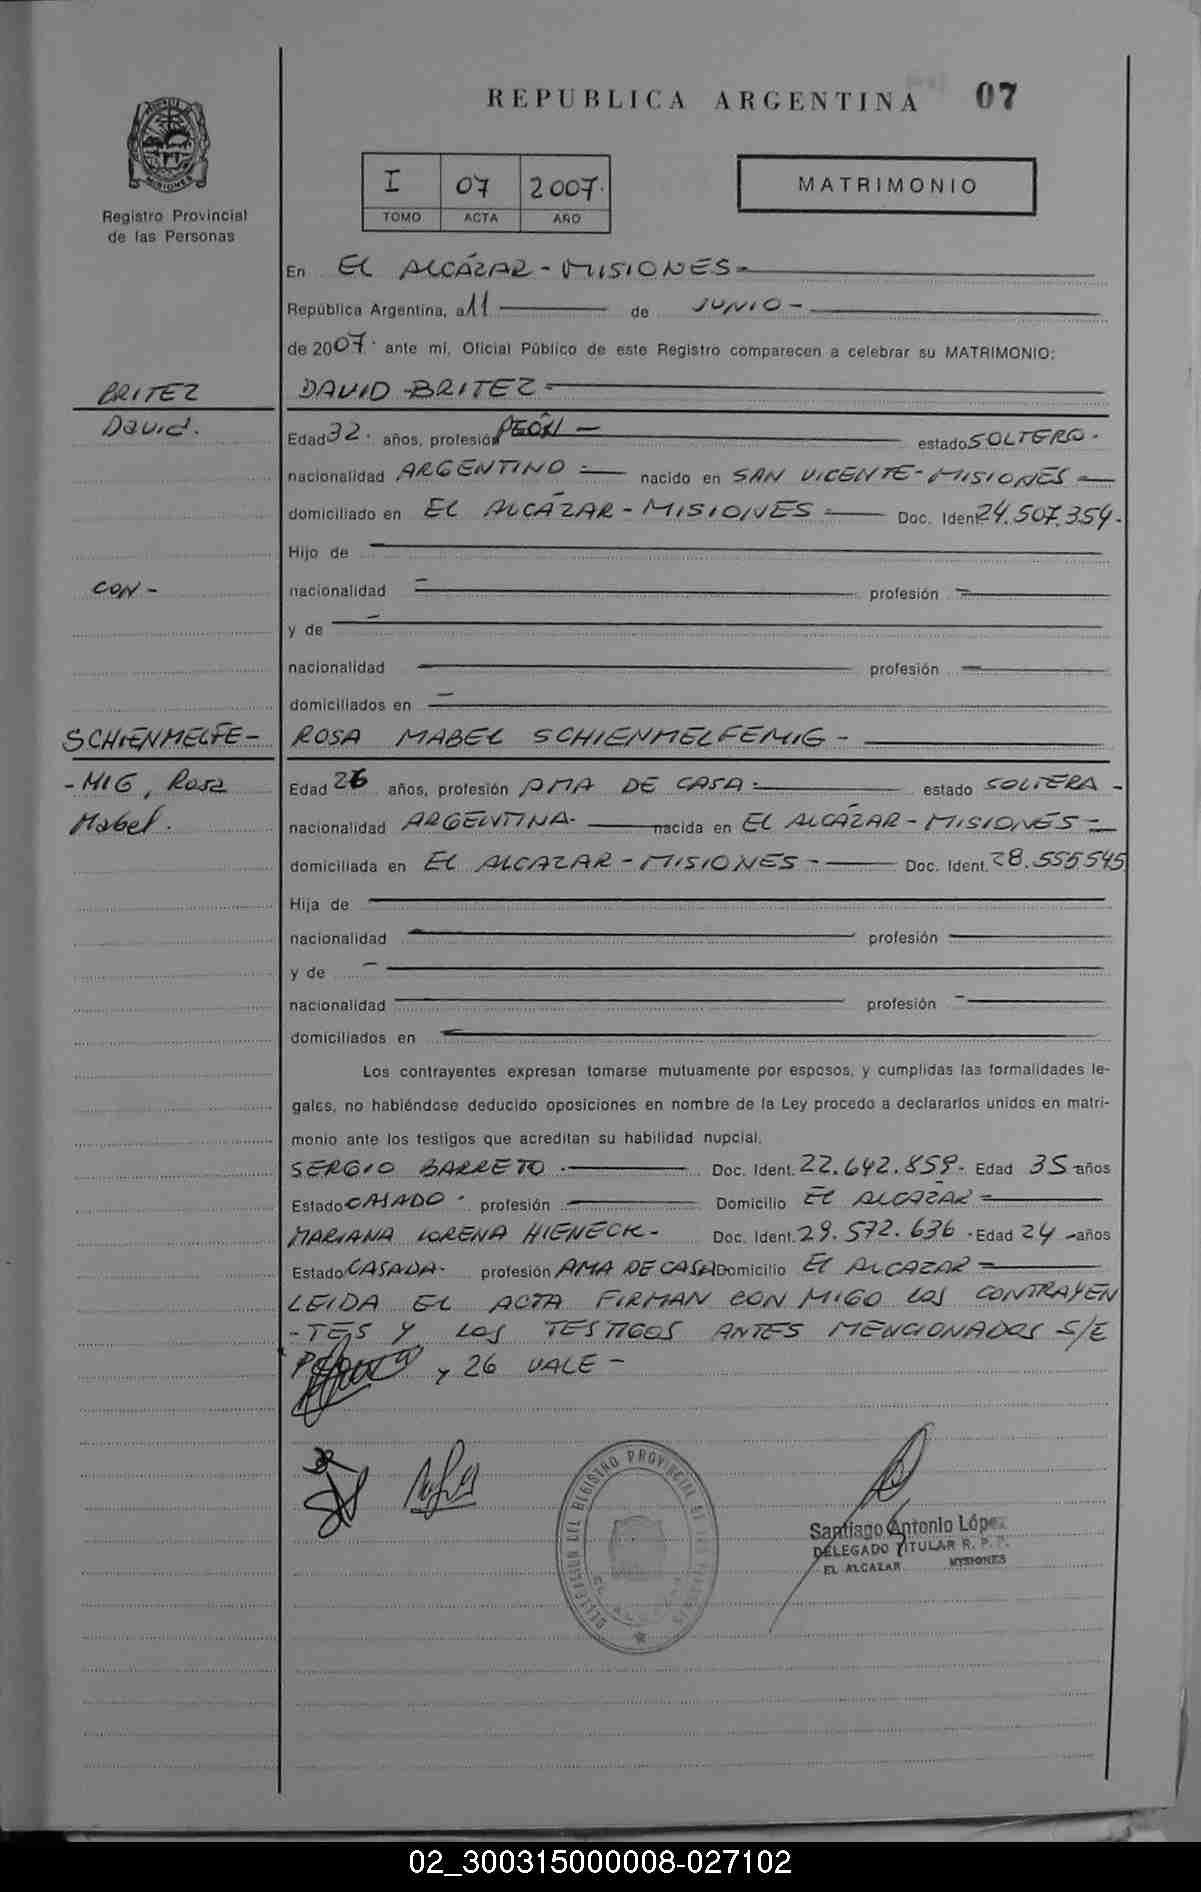 REPUBLICA ARGENTINA 07
MISIONES
Registro Provincial
de las Personas
I 07 2007.
TOMO ACTA AÑO
MATRIMONIO
En EL ALCÁZAR - MISIONES -
República Argentina, a 11 de JUNIO -
de 2007. ante mí, Oficial Público de este Registro comparecen a celebrar su MATRIMONIO:
BRITEZ
DAVID BRITEZ
David.
Edad 32. años, profesión PEÓN - estado SOLTERO.
nacionalidad ARGENTINO nacido en SAN VICENTE - MISIONES
domiciliado en EL ALCÁZAR - MISIONES Doc. Ident. 24.507.354.
Hijo de
CON -
nacionalidad profesión
y de
nacionalidad profesión
domiciliados en
SCHIENMELFE-
ROSA MABEL SCHIENMELFEMIG -
-MIG, Rosa
Mabel.
Edad 26 años, profesión AMA DE CASA estado SOLTERA -
nacionalidad ARGENTINA. nacida en EL ALCÁZAR - MISIONES -
domiciliada en EL ALCAZAR - MISIONES - Doc. Ident. 28.555.545
Hija de
nacionalidad profesión
y de
nacionalidad profesión
domiciliados en
Los contrayentes expresan tomarse mutuamente por esposos, y cumplidas las formalidades le-
gales, no habiéndose deducido oposiciones en nombre de la Ley procedo a declararlos unidos en matri-
monio ante los testigos que acreditan su habilidad nupcial.
SERGIO BARRETO Doc. Ident. 22.642.859. Edad 35 años
Estado CASADO. profesión Domicilio EL ALCAZAR
MARIANA LORENA HIENECK - Doc. Ident. 29.572.636. Edad 24 años
Estado CASADA. profesión AMA DE CASA Domicilio EL ALCAZAR
LEIDA EL ACTA FIRMAN CON MIGO LOS CONTRAYEN
-TES Y LOS TESTIGOS ANTES MENCIONADOS S/E
y 26 VALE -
DELEGACION DEL REGISTRO PROVINCIAL DE LAS PERSONAS
Santiago Antonio López
DELEGADO TITULAR R. P. P.
EL ALCAZAR MISIONES
02_300315000008-027102